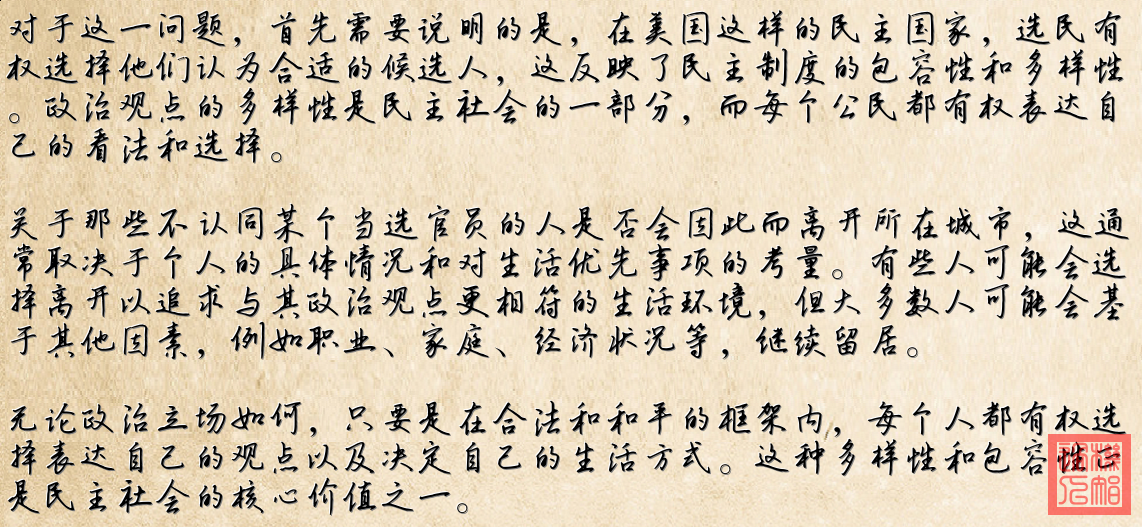 对于这一问题，首先需要说明的是，在美国这样的民主国家，选民有
权选择他们认为合适的候选人，这反映了民主制度的包容性和多样性
。政治观点的多样性是民主社会的一部分，而每个公民都有权表达自
己的看法和选择。
关于那些不认同某个当选官员的人是否会因此而离开所在城市，这通
常取决于个人的具体情况和对生活优先事项的考量。有些人可能会选
择离开以追求与其政治观点更相符的生活环境，但大多数人可能会基
于其他因素，例如职业、家庭、经济状况等，继续留居。
无论政治立场如何，只要是在合法和和平的框架内，每个人都有权选
择表达自己的观点以及决定自己的生活方式。这种多样性和包容性正
是民主社会的核心价值之一。